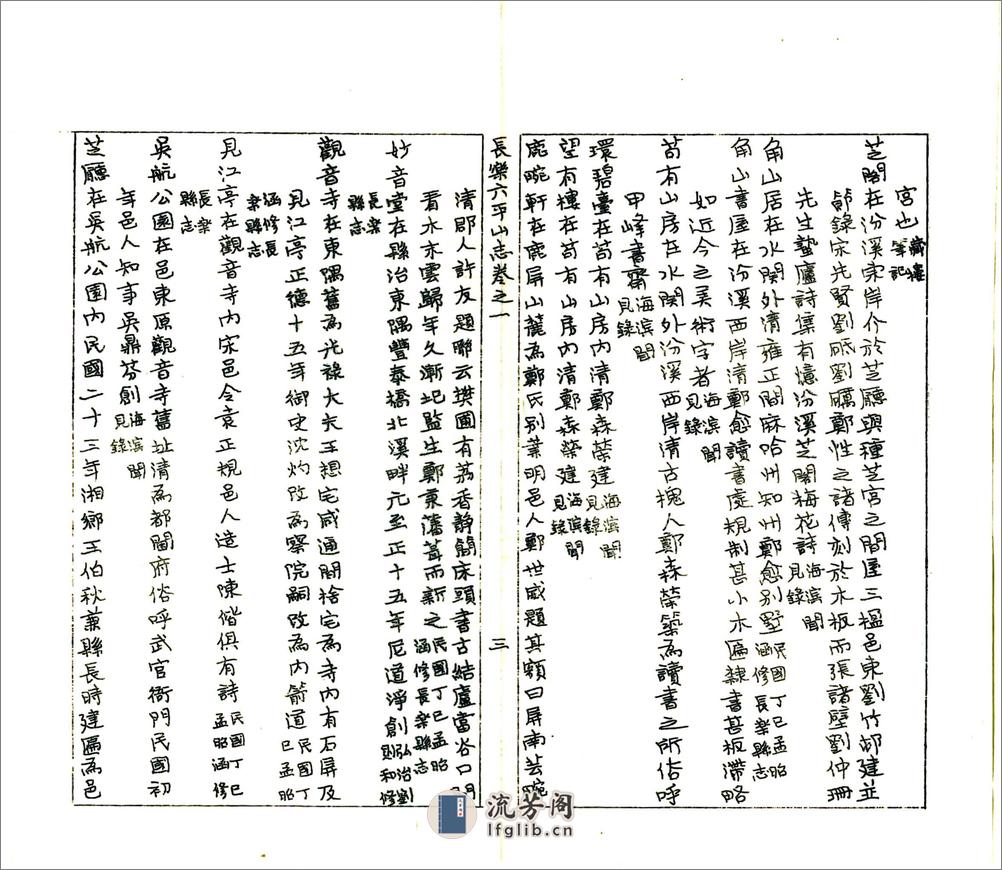 宮也
芝閣在汾溪東岸介於芝廳與種芝宮之間屋三楹邑東劉竹邨建並
節錄宋先賢劉砥劉礪鄭性之諸傳刻於木板而張諸壁劉仲冊
先生蟄廬詩集有憶汾溪芝閣梅花詩海濱聞見錄
角山居在水關外清雍正間麻哈州知州鄭愈別墅民國丁巳孟昭涵修長樂縣志
角山書屋在汾溪西岸清鄭愈讀書處規制甚小木匾隸書甚板滯略
如近今之美術字者海濱聞見錄
苟有山房在水關外汾溪西岸清古槐人鄭森榮築為讀書之所俗呼
甲峰書齋海濱聞見錄
環碧臺在苟有山房內清鄭森榮建海濱聞見錄
望有樓在苟有山房內清鄭森榮建海濱聞見錄
鹿畹軒在鹿屏山麓為鄭氏別業明邑人鄭世威題其額曰屏南芸畹
長樂六平山志卷之一 三
清郡人許友題聯云撲圃有荔香靜簡床頭書古結廬富谷口
看水亦雲歸年久漸圮監生鄭秉藩葺而新之民國丁巳孟昭涵修長樂縣志
妙音堂在縣治東隅豐泰橋北溪畔元至正十五年尼道淨創弘治劉則和修長樂縣志
觀音寺在東隅舊為光祿大夫王想宅咸通間捨宅為寺內有石屏及
見江亭正德十五年御史沈灼改為察院嗣改為內箭道民國丁巳孟昭涵修長樂縣志
見江亭在觀音寺內宋邑令袁正規邑人進士陳偕俱有詩民國丁巳孟昭涵修長樂縣志
吳航公園在邑東原觀音寺舊址清為都閫府俗呼武官衙門民國初
年邑人知事吳鼎芬創海濱聞見錄
芝廳在吳航公園內民國二十三年湘鄉王伯秋兼縣長時建匾為邑
流芳阁
lfglib.cn